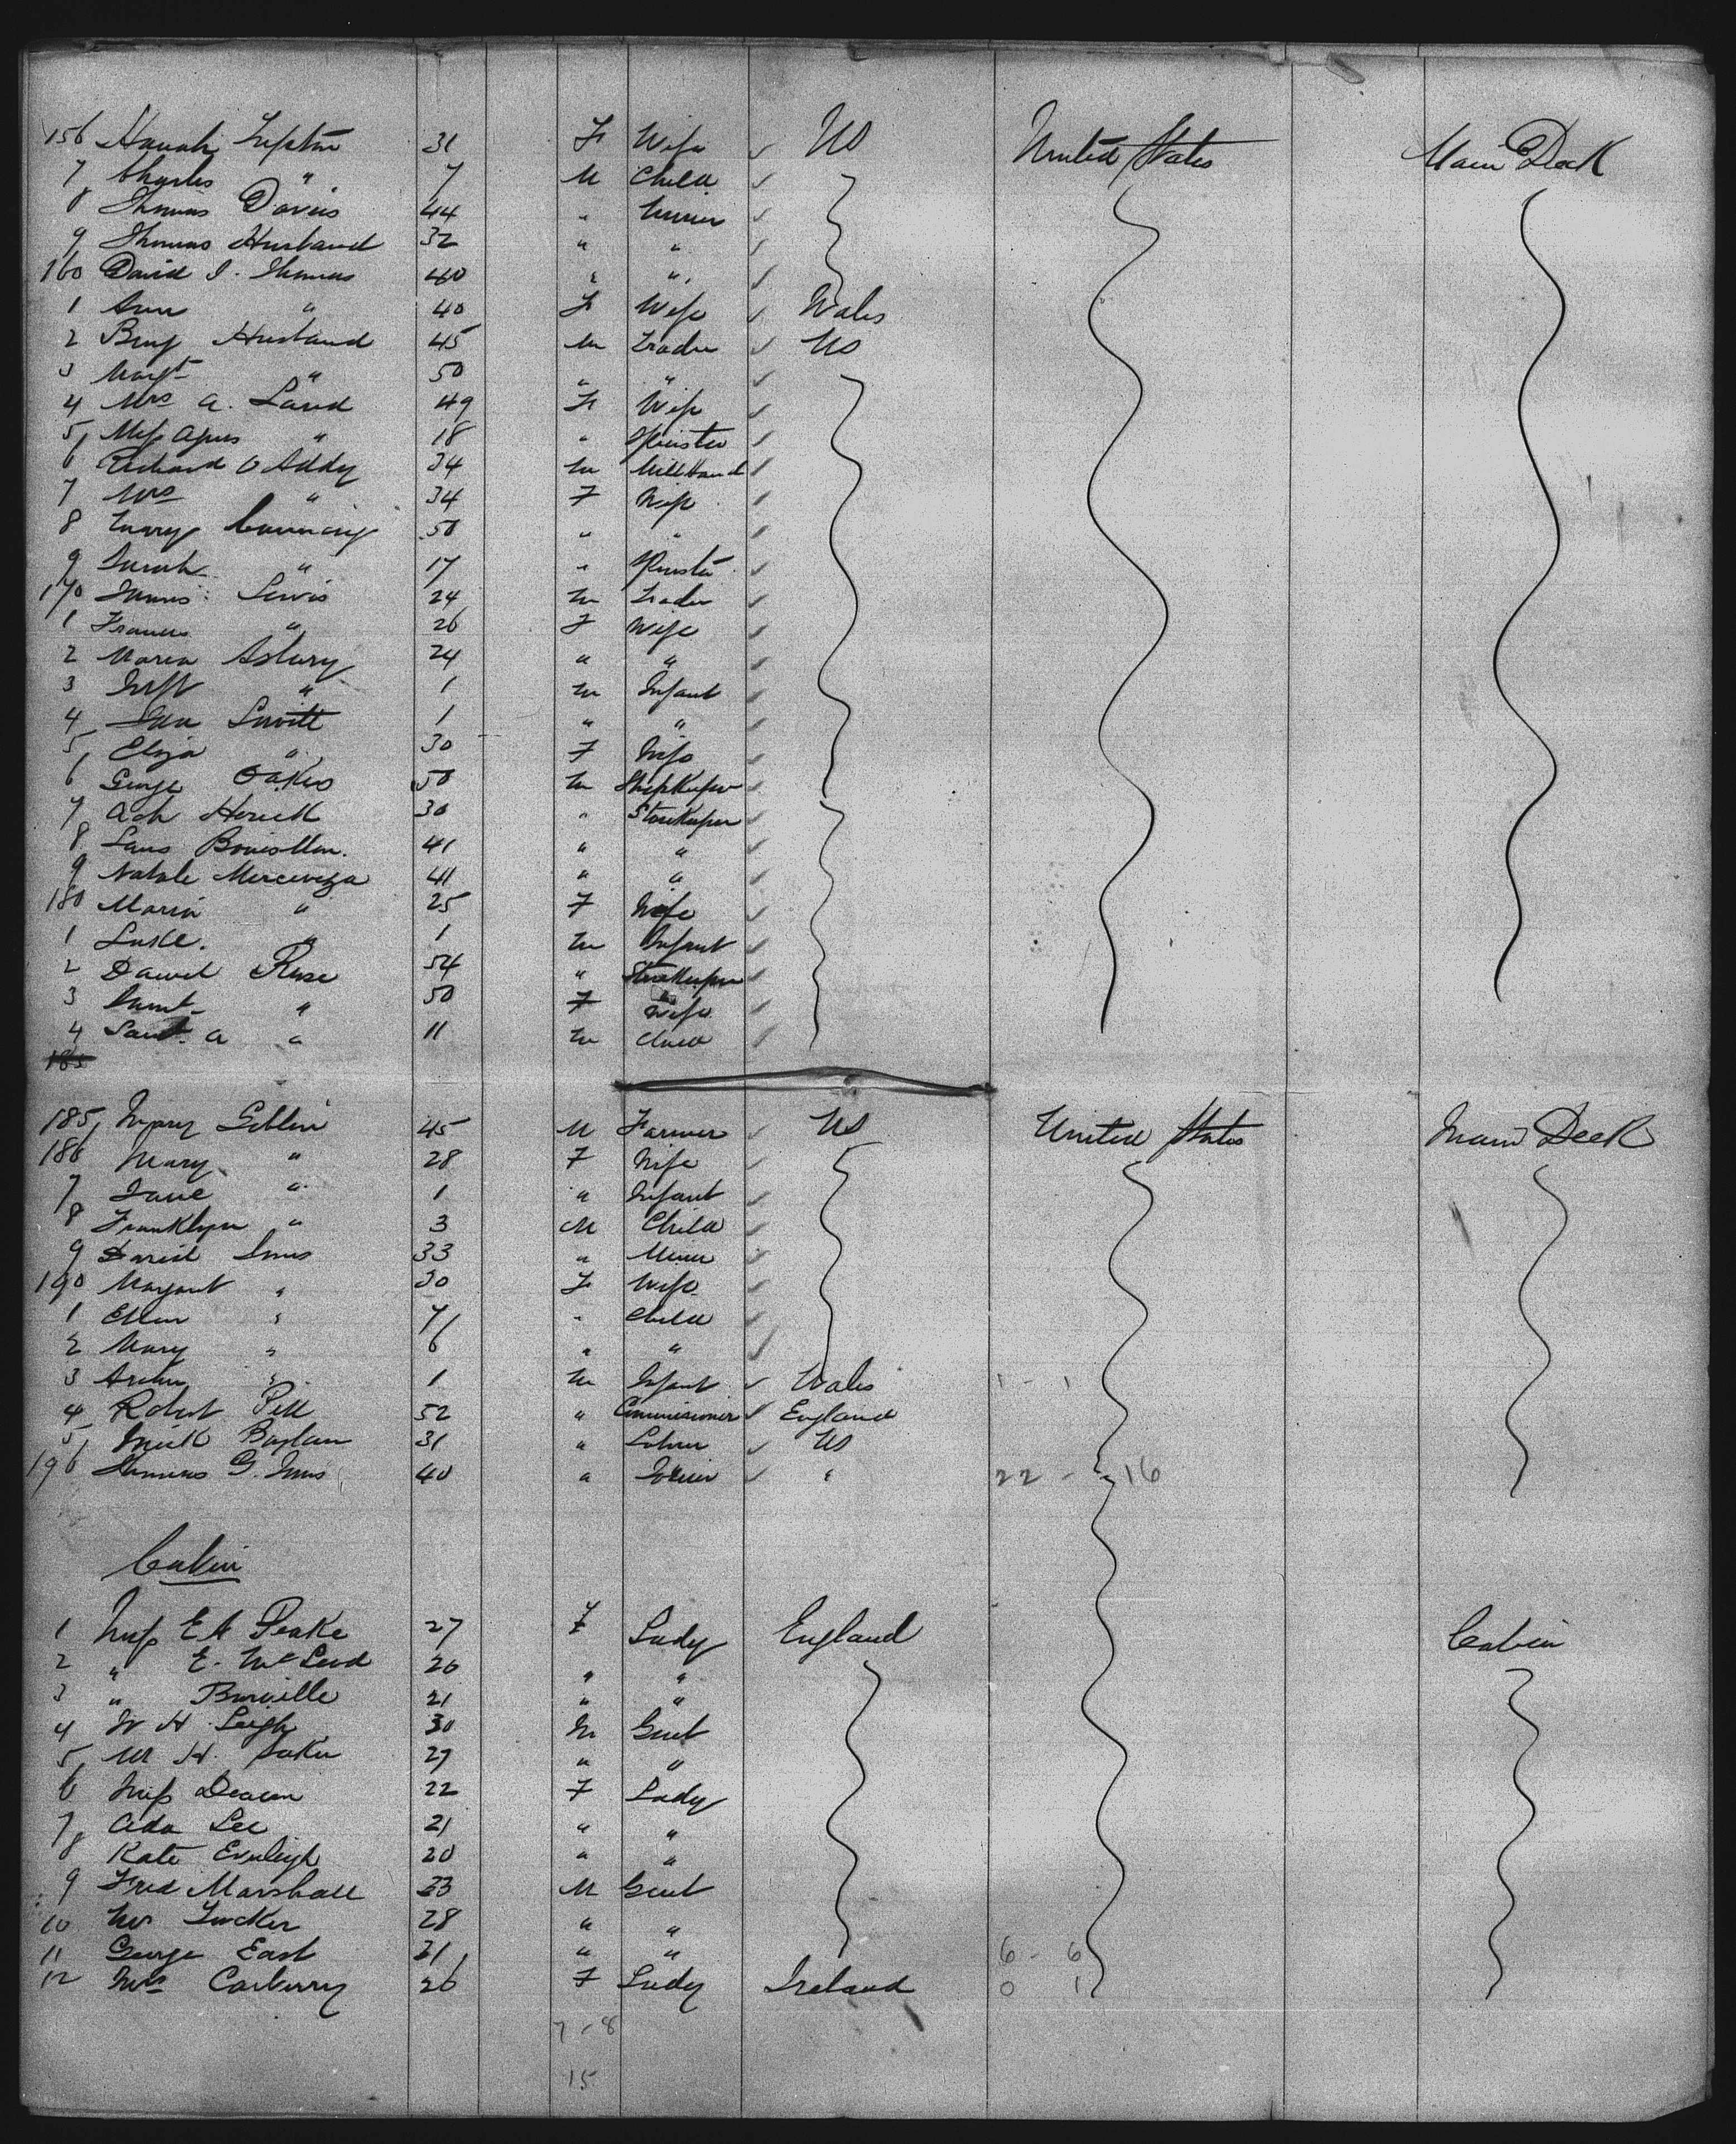 156 Hanah Lupton 31 F Wife US United States Main Deck
7 Charles " 7 M Child
8 Thomas Davies 44 " Miner
9 Thomas Husband 32 " "
160 David J. Thomas 40 " "
1 Ann " 40 F Wife Wales
2 Benj Husband 45 M Trader US
3 Margt " 50 " "
4 Mrs A. Laud 49 F Wife
5 Miss Agnes " 18 " Spinster
6 Richard O Addy 34 M Mill Hand
7 Mrs " 34 F Wife
8 50 " "
9 Sarah " 17 " Spinster
170 James Lewis 24 M Trader
1 Frances " 26 F Wife
2 Maria Asbury 24 " "
3 Inft " 1 M Infant
4 1 " "
5 Eliza " 30 F Wife
6 George Oakes 50 M Shopkeeper
7 30 " Storekeeper
8 41 " "
9 Natale 41 " "
180 Maria " 25 F Wife
1 Luke. " 1 M Infant
2 Daniel Rose 54 " Storekeeper
3 " 50 F Wife
4 A " 11 M Child
185
185 Giblin 45 M Farmer US United States Main Deck
186 Mary " 28 F Wife
7 Jane " 1 " Infant
8 Franklyn " 3 M Child
9 David 33 " Miner
190 Margaret " 30 F Wife
1 Ellen " 7 " Child
2 Mary " 6 " "
3 Arthur " 1 M Infant Wales 1 - 1
4 Robert Pell 52 " Commissioner England
5 Mick Boylan 31 " Labourer US
196 Thomas G. 40 " " 22 - 16
Cabin
1 Miss E A Peake 27 F Lady England Cabin
2 " E. McLeod 26 " "
3 " Burville 21 " "
4 W H Leigh 30 M Gent
5 Mr H. 27 " "
6 Miss Deacon 22 F Lady
7 Ada Lee 21 " "
8 Kate Everleigh 20 " "
9 Fred Marshall 33 M Gent
10 Mr Tucker 28 " "
11 George East 31 " " 6 - 6
12 Mrs Carberry 26 F Lady Ireland 0 1
7 - 8
15